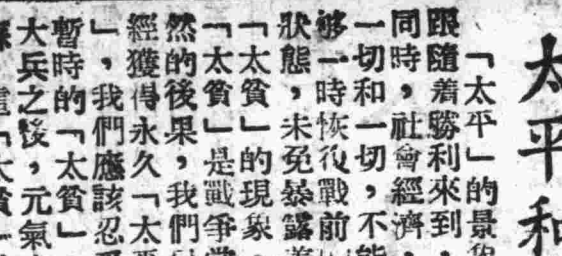 太平和
「太平」的景象
跟隨着勝利來到，
同時，社會經濟，
一切和一切，不能
够一時恢復戰前
狀態，未免暴露着
「太貧」的現象。
「太貧」是戰爭當
然的後果，我們
經獲得永久「太平
」，我們應該忍受
暫時的「太貧」
大兵之後，元氣